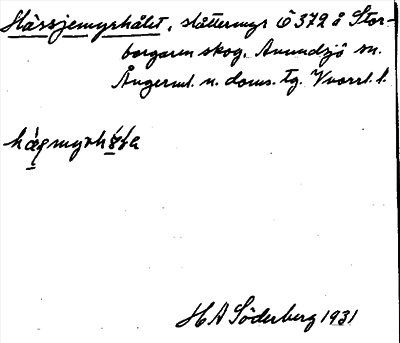 Hässjemyrhålet, slåttermyr Ö 372 å Stor-
borgaren skog. Anundsjö sn.
Ångerml. n. doms. tg. Vnorrl. l.
H A Söderberg 1931